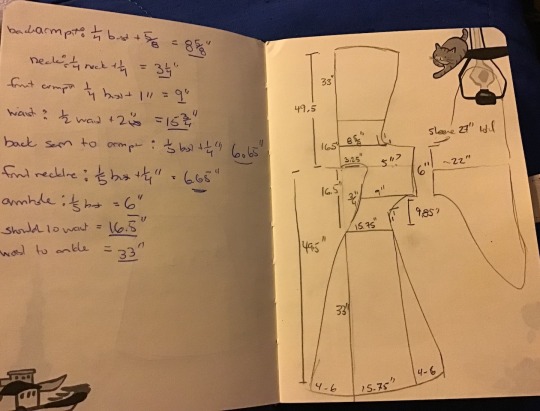 back armpit: 1/4 bust + 5/8 = 8 5/8"
neck: 1/4 neck + 1/4 = 3 1/4"
front armpit 1/4 bust + 1" = 9"
waist: 1/2 waist + 2" = 15 3/4"
back seam to armpit: 1/5 bust + 1/4" 6.65"
front neckline: 1/5 bust + 1/4" = 6.65"
armhole: 1/5 bust = 6"
should to waist = 16.5"
waist to ankle = 33"
33"
49.5
16.5
8 5/8
3.25"
5"?
6"
Sleeve 23"
~22"
16.5"
9"
9.85"
15.75"
49.5"
33"
4-6
15.75"
4-6